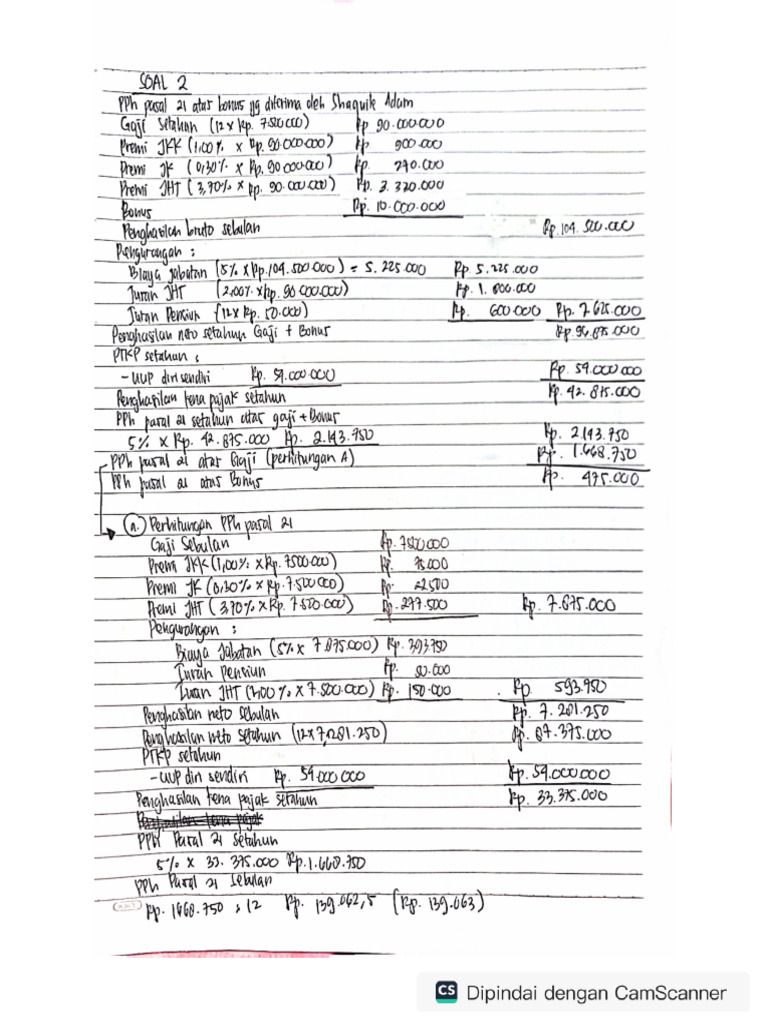 SOAL 2
PPh pasal 21 atas bonus yg diterima oleh Shaquile Adam
Gaji Setahun (12 x Rp. 7.500.000) Rp 90.000.000
Premi JKK (1,00% x Rp. 90.000.000) Rp 900.000
Premi JK (0,30% x Rp. 90.000.000) Rp. 270.000
Premi JHT (3,70% x Rp. 90.000.000) Rp. 3.330.000
Bonus Rp. 10.000.000
Penghasilan bruto sebulan Rp. 104.500.000
Pengurangan :
Biaya Jabatan (5% x Rp. 104.500.000) = 5.225.000 Rp 5.225.000
Iuran JHT (2,00% x Rp. 90.000.000) Rp. 1.800.000
Iuran Pensiun (12 x Rp. 50.000) Rp. 600.000 Rp. 7.625.000
Penghasilan neto setahun Gaji + Bonus Rp 96.875.000
PTKP setahun :
- WP diri sendiri Rp. 54.000.000 Rp. 54.000.000
Penghasilan kena pajak setahun Rp. 42.875.000
PPh pasal 21 setahun atas gaji + Bonus
5% x Rp. 42.875.000 Rp. 2.143.750 Rp. 2.143.750
PPh pasal 21 atas Gaji (perhitungan A) Rp. 1.668.750
PPh pasal 21 atas Bonus Rp. 475.000
a. Perhitungan PPh pasal 21
Gaji Sebulan Rp. 7500.000
Premi JKK (1,00% x Rp. 7500.000) Rp. 75.000
Premi JK (0,30% x Rp. 7.500.000) Rp. 22.500
Premi JHT (3,70% x Rp. 7.500.000) Rp. 277.500 Rp. 7.875.000
Pengurangan :
Biaya Jabatan (5% x 7.875.000) Rp. 393.750
Iuran Pensiun Rp. 50.000
Iuran JHT (2,00% x 7.500.000) Rp. 150.000 Rp 593.750
Penghasilan neto sebulan Rp. 7.281.250
Penghasilan neto setahun (12 x 7.281.250) Rp. 87.375.000
PTKP setahun
- WP diri sendiri Rp. 54.000.000 Rp. 54.000.000
Penghasilan kena pajak setahun Rp. 33.375.000
PPh Pasal 21 setahun
5% x 33.375.000 Rp. 1.668.750
PPh Pasal 21 Sebulan
Rp. 1668.750 : 12 Rp. 139.062,5 (Rp. 139.063)
CS Dipindai dengan CamScanner